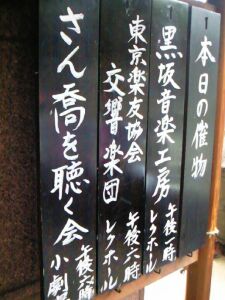 本日の催物
黒坂音楽工房
午後一時
レクホール
東京楽友協会
交響楽団
午後六時
レクホール
さん喬を聴く会
午後六時
小劇場